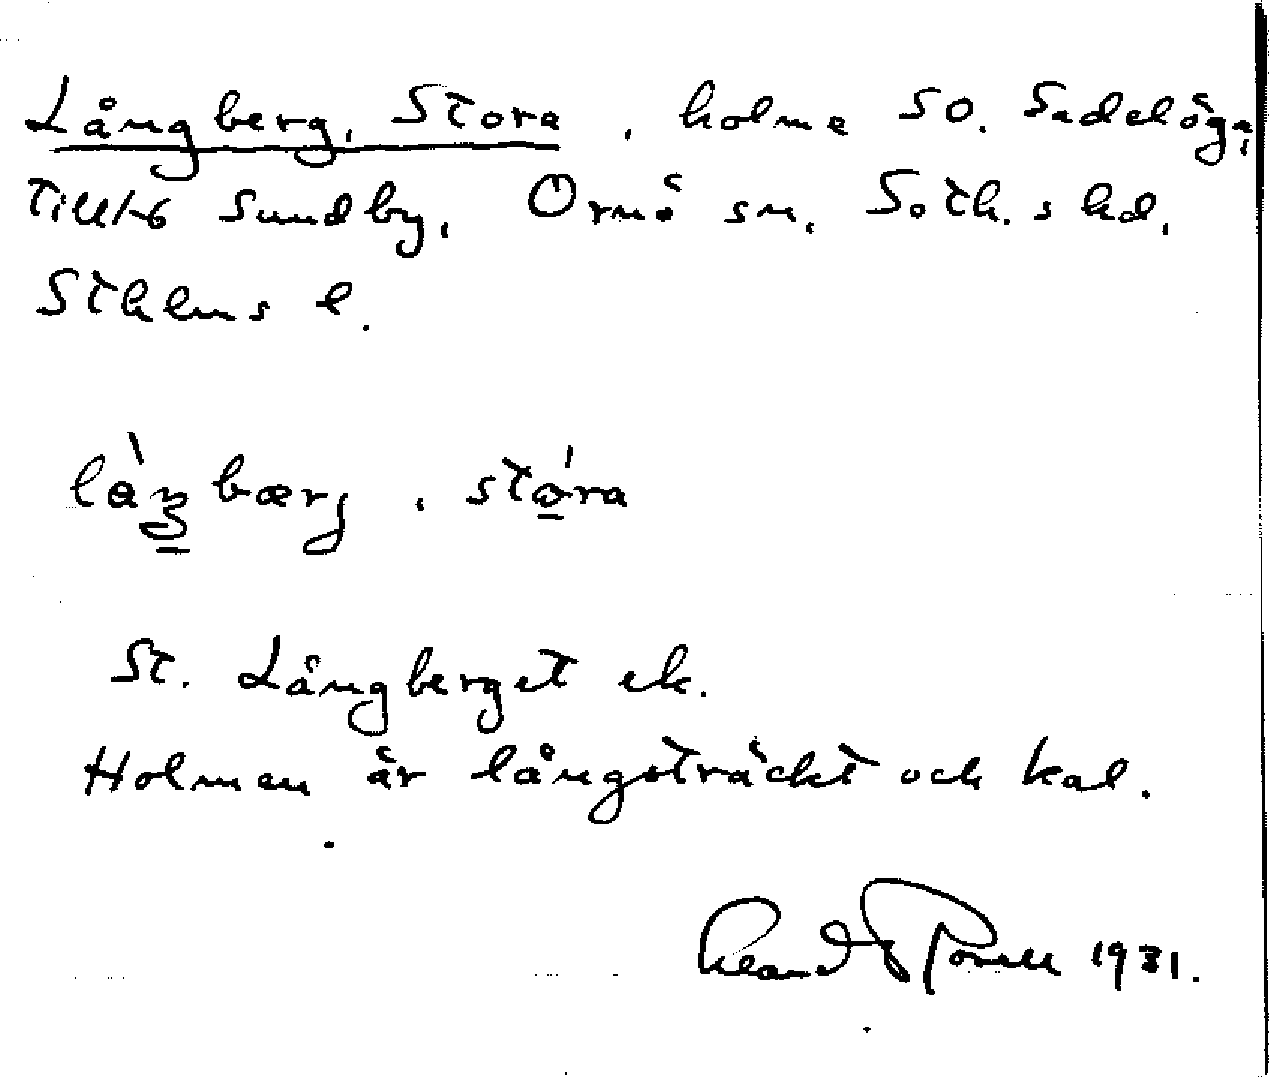 Långberg, Stora, holme SO. Sadelöga,
Till 1-6 Sundby, Ornö sn. Soth.s hd.
Sthlms l.
stóra
St. Långberget ek.
Holmen är långsträckt och kal.
1931.